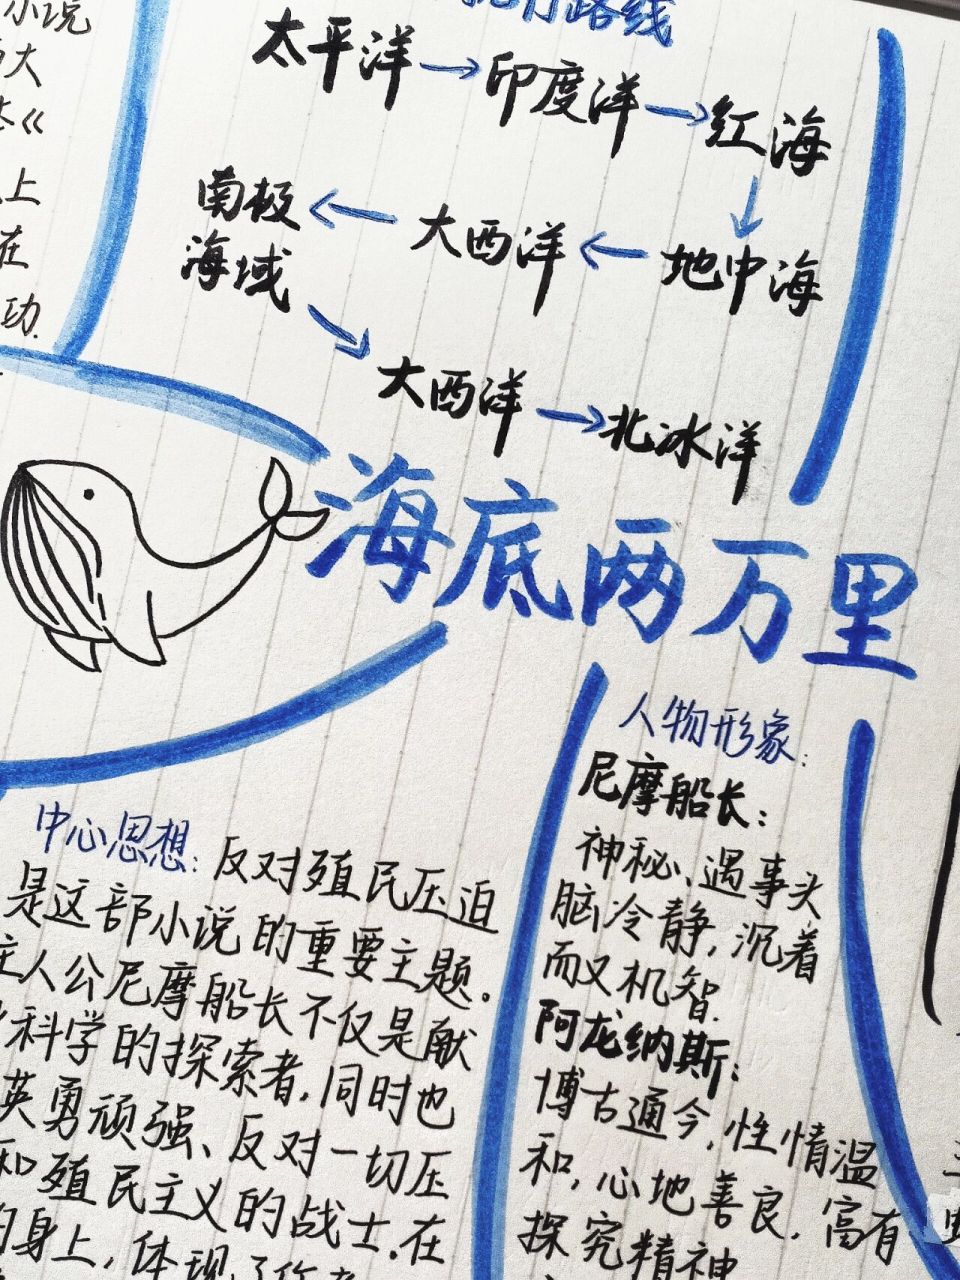 小说
大
《
上
在
功.
航行路线
太平洋→印度洋→红海
↓
南极海域←大西洋←地中海
↘
大西洋→北冰洋
海底两万里
中心思想:反对殖民压迫
是这部小说的重要主题。
主人公尼摩船长不仅是献
科学的探索者,同时也
英勇顽强、反对一切压
和殖民主义的战士.在
身上,体现了作者
人物形象:
尼摩船长:
神秘、遇事头
脑冷静,沉着
而又机智.
阿龙纳斯:
博古通今,性情温
和,心地善良.富有
探究精神